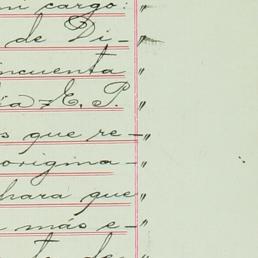 mi cargo: "
de Di- "
incuenta "
ia E. P. "
s que re- "
origina- "
para que "
más e- "
te de